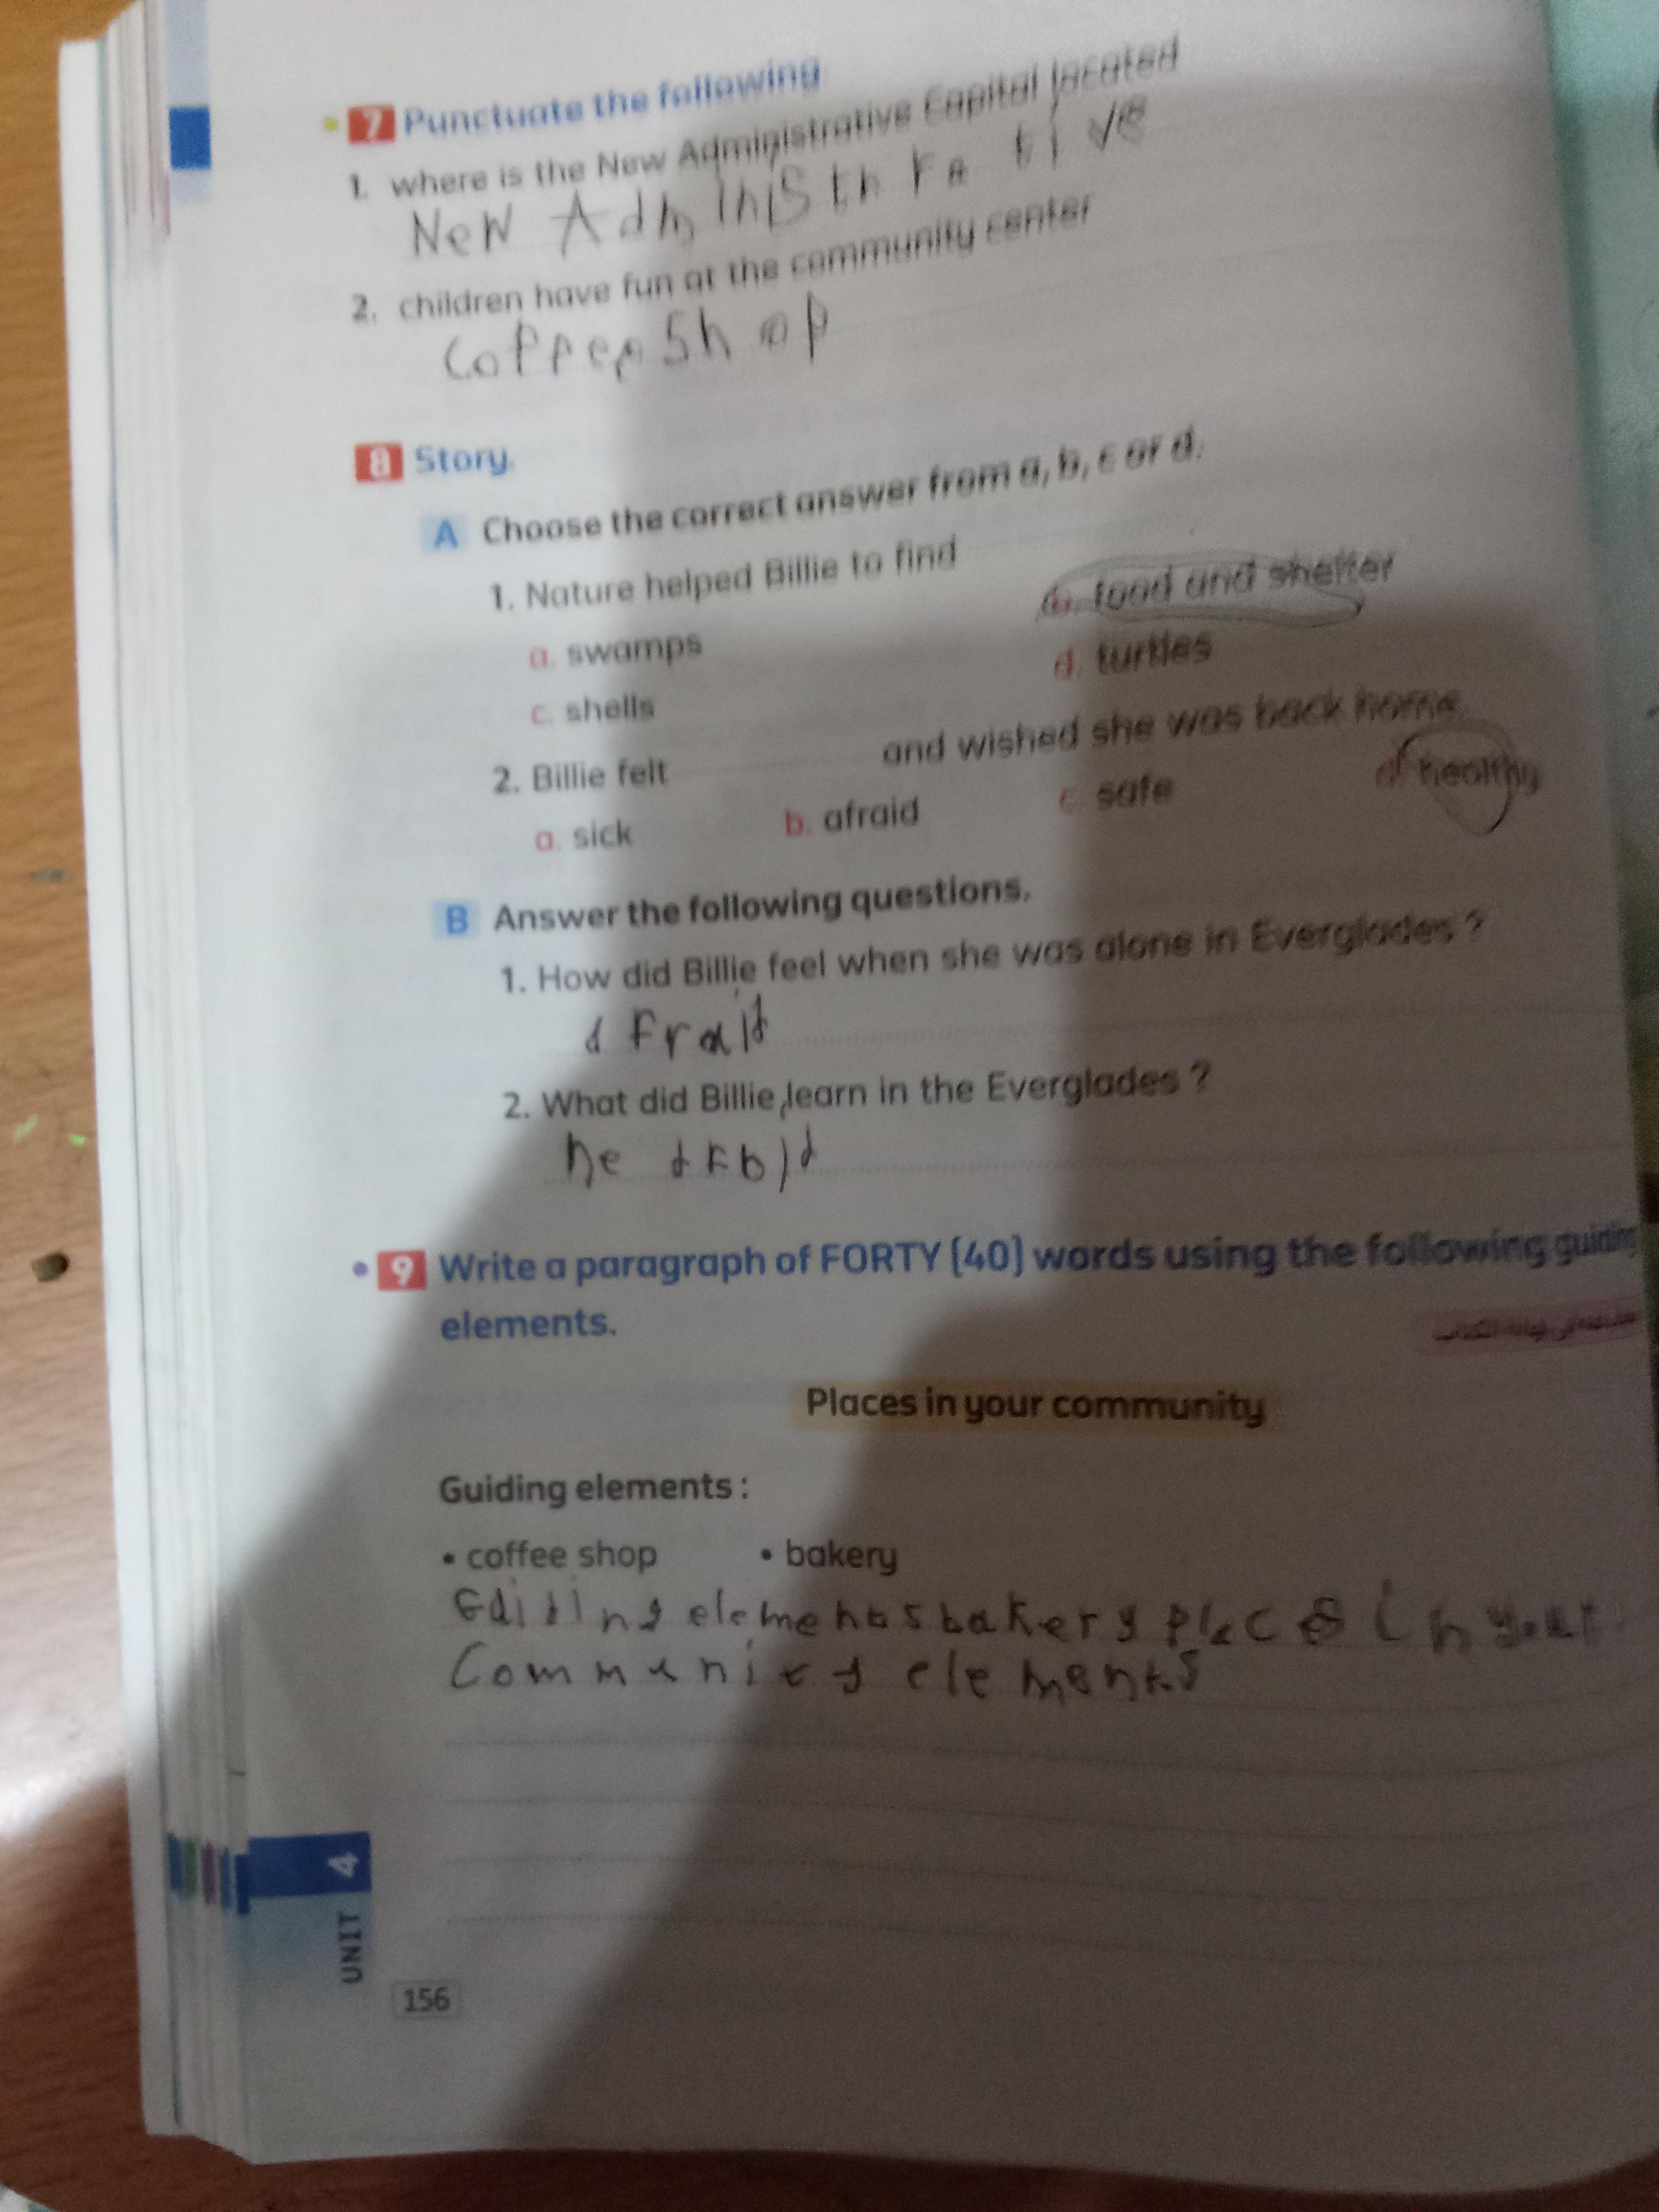 7 Punctuate the following
1. where is the New Administrative Capital located
New Administhrative
2. children have fun at the community center
Coffeeshop
8 Story.
A Choose the correct answer from a, b, c or d.
1. Nature helped Billie to find
a. swamps b. food and shelter
c. shells d. turtles
2. Billie felt and wished she was back home.
a. sick b. afraid c. safe d. healthy
B Answer the following questions.
1. How did Billie feel when she was alone in Everglades ?
afraid
2. What did Billie learn in the Everglades ?
he
• 9 Write a paragraph of FORTY (40) words using the following guiding
elements.
Places in your community
Guiding elements :
• coffee shop • bakery
elements bakery places in your
Community elements
UNIT 4
156